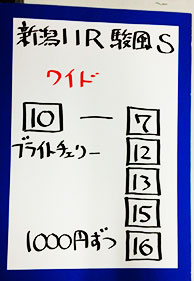 新潟11R駿風S
ワイド
10 — 7
ブライトチェリー
12
13
15
16
1000円ずつ